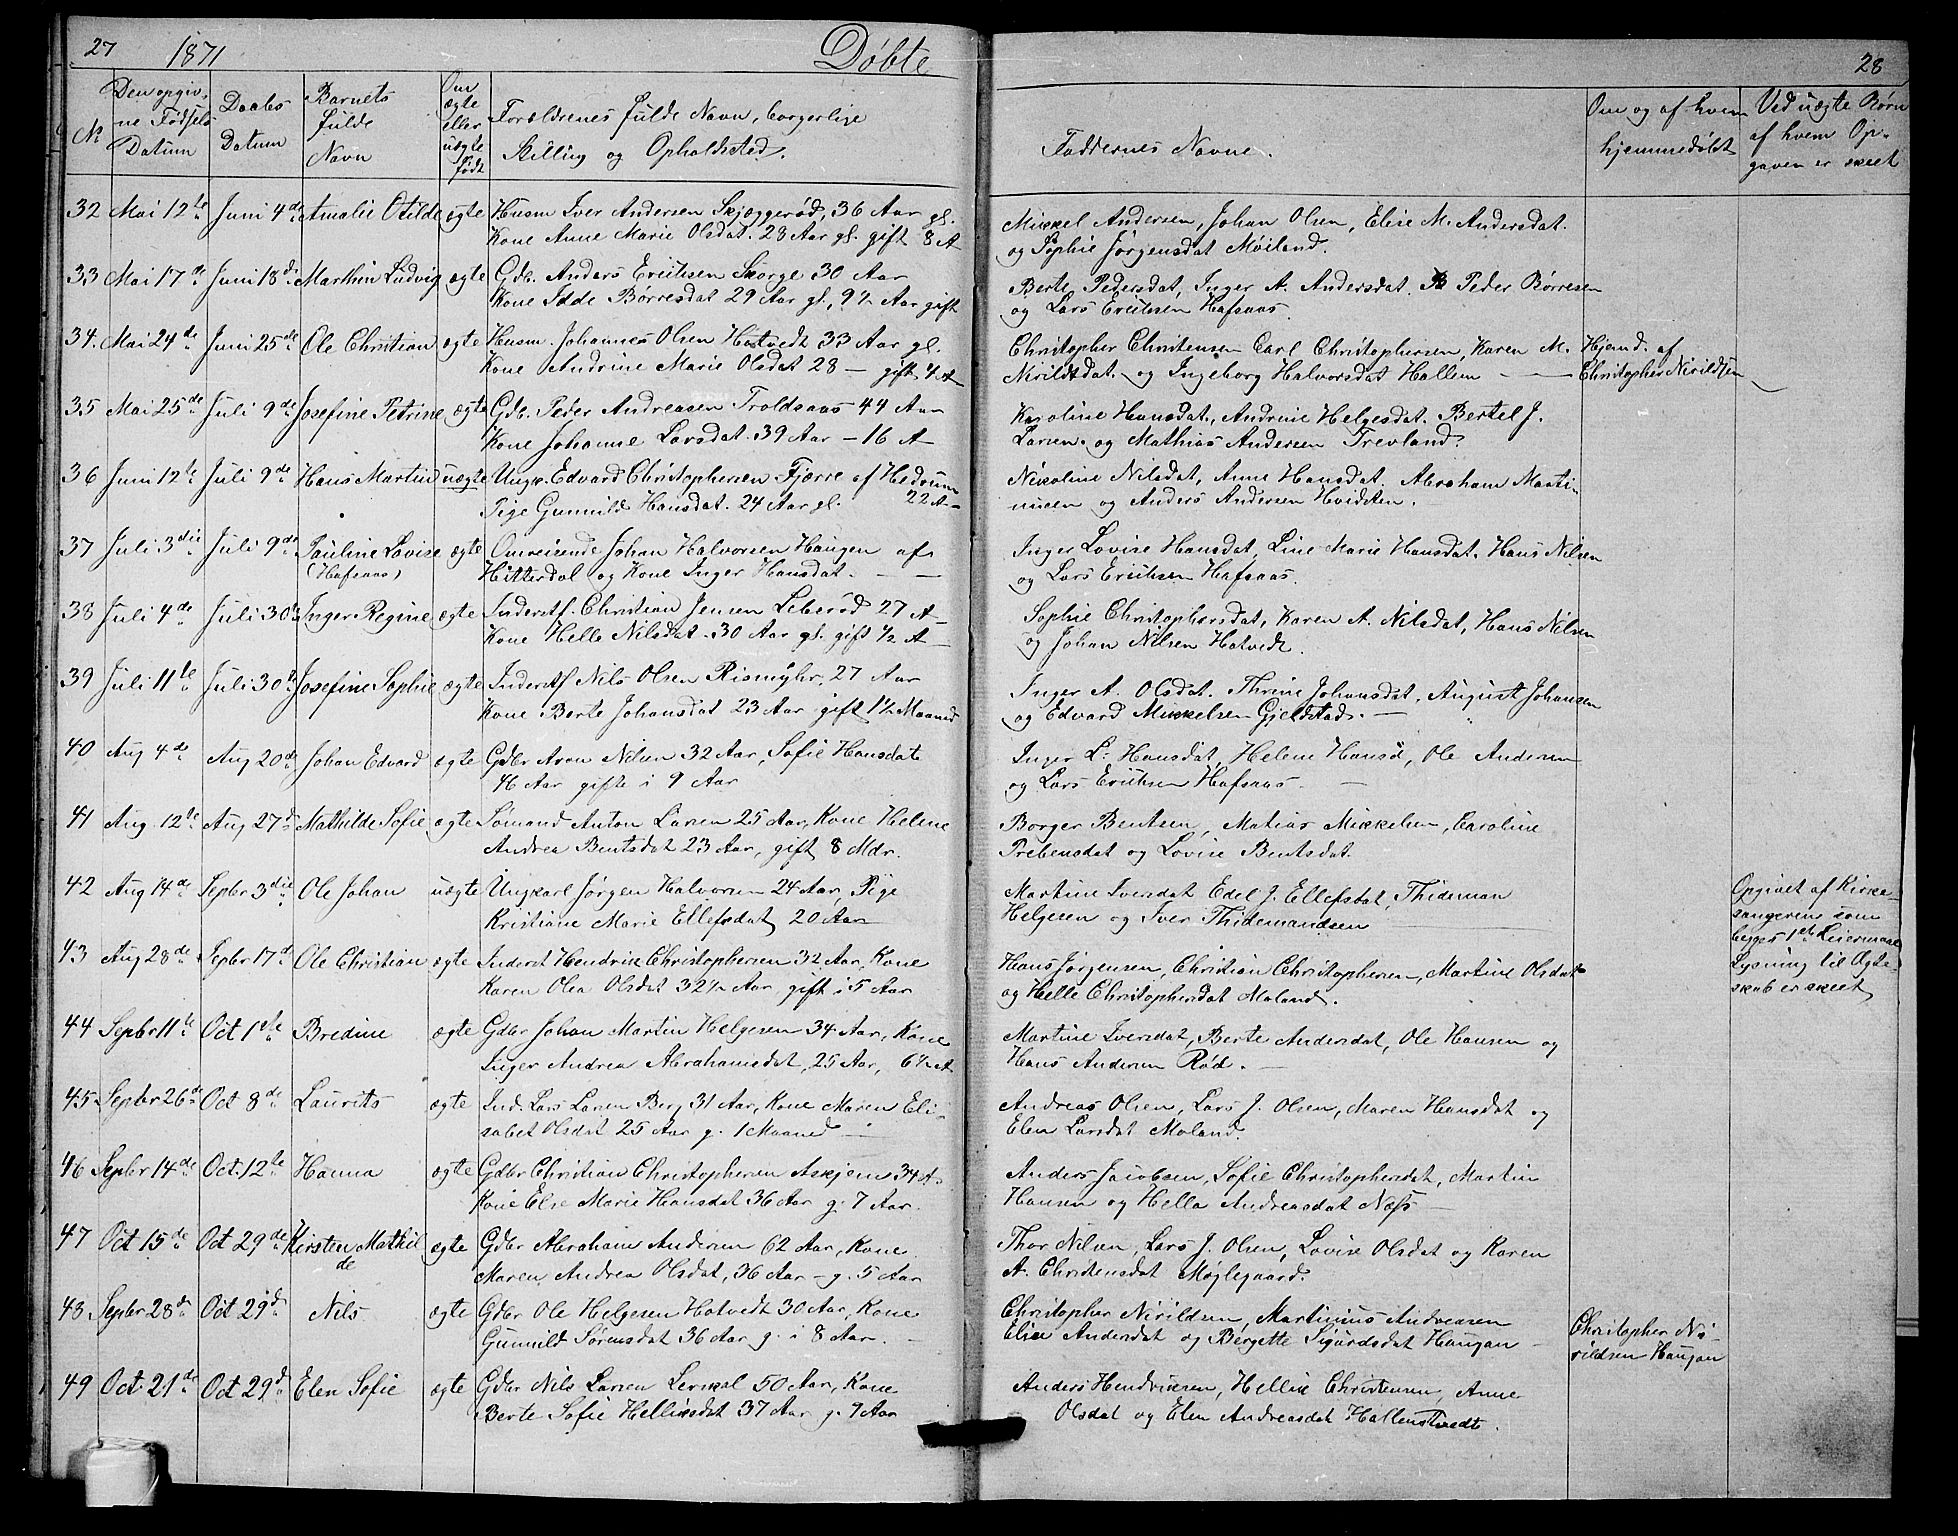 27 1871 Døbte 28
No
Den opgiv,
ne Fødsels
Datum
Daabs
Datum
Barnets
fulde
Navn
Om
ægte
eller
uægte
født
Forældrenes fulde Navn, borgerlige
Stilling og Opholdsted.
Faddernes Navne.
Om og af hvem
hjemmedøbt
Ved uægte Børn
af hvem Op-
gaven er skeet
32 Mai 12te Juni 4de Amalie Otilde ægte Husm Iver Andersen Skjæggerød, 36 Aar gl.
Kone Anne Marie Olsdat. 28 Aar gl. gift 8 A
Mikkel Andersen, Johan Olsen, Elise M. Andersdat.
og Sophie Jørgensdat Møiland.
33 Mai 17de Juni 18de Marthin Ludvig ægte Gdb. Anders Eriksen Skorge 30 Aar
Kone Idde Børresdat 29 Aar gl, 9½ Aar gift
Berte Pedersdat, Inger A. Andersdat. Peder Børresen
og Lars Eriksen Hafsaas.
34. Mai 24de Juni 25de Ole Christian ægte Husm. Johannes Olsen Hotvedt 33 Aar gl.
Kone Andrine Marie Olsdat 28 — gift ½ A
Christopher Christensen Carl Christophersen, Karen M.
Nirildsdat. og Ingeborg Halvorsdat Hallem
Hjemd. af
Christopher Nirildsen
35 Mai 25de Juli 9de Josefine Petrine ægte Gdb. Peder Andreasen Troldsaas 44 Aar
Kone Johanne Larsdat. 39 Aar — 16 A
Karoline Hansdat., Andrine Helgesdat. Bertel J.
Larsen. og Mathias Andersen Trevland.
36 Juni 12te Juli 9de Hans Martin uægte Ungk. Edvard Christophersen Fjærre af Hedrum
22 A
Pige Gunnild Hansdat. 24 Aar gl.
Nikoline Nilsdat, Anne Hansdat. Abraham Marti-
nusen og Anders Andersen Hvidsten.
37 Juli 3die Juli 9de Pauline Lovise ægte Omreisende Johan Halvorsen Haugen af
(Hafsaas) Hitterdal og Kone Inger Hansdat.
Inger Lovise Hansdat, Line Marie Hansdat. Hans Nilsen
og Lars Eriksen Hafsaas.
38 Juli 4de Juli 30te Inger Regine ægte Inderst. Christian Jensen Leberød 27 A
Kone Helle Nilsdat. 30 Aar gl. gift ½ A
Sophie Christophersdat, Karen A. Nilsdat, Hans Nilsen
og Johan Nilsen Hotvedt.
39 Juli 11te Juli 30te Josefine Sophie ægte Inderst Nils Olsen Rismyhr, 27 Aar
Kone Berte Johansdat 23 Aar gift 1½ Maaned
Inger A. Olsdat. Thrine Johansdat, August Johansen
og Edvard Mikkelsen Gjeldstad.
40 Aug 4de Aug 20de Johan Edvard ægte Gdbr Aron Nilsen 32 Aar, Sofie Hansdate
46 Aar gifte i 9 Aar
Inger L. Hansdat, Helene Hansd, Ole Andersen
og Lars Eriksen Hafsaas
41 Aug. 12te Aug 27d Mathilde Sofie ægte Sømand Anton Larsen 25 Aar, Kone Helene
Andrea Bentsdat 23 Aar, gift 8 Mdr.
Borger Bentsen, Matias Mikkelsen, Caroline
Prebensdat og Lovise Bentsdat.
42 Aug 14de Sepbr 3die Ole Johan uægte Ungkarl Jørgen Halvorsen 24 Aar, Pige
Kristiane Marie Ellefsdat 20 Aar
Martine Iversdat Edel J. Ellefsdat, Thideman
Helgesen og Iver Thidemandsen
Opgivet af Kirke-
sangeren som
begges 1ste Leiermaal
Lysning til Ægte-
skab er skeet
43 Aug 28de Sepbr 17d Ole Christian ægte Inderst Hendrik Christophersen 32 Aar, Kone
Karen Olea Olsdat 32½ Aar gift i 5 Aar
Hans Jørgensen, Christian Christophersen, Martine Olsdat
og Helle Christophersdat Moland.
44 Sepbr 11te Oct 1ste Bredine ægte Gdbr Johan Martin Helgesen 34 Aar, Kone
Inger Andrea Abrahamsdat, 25 Aar, 6½ A
Martine Iversdat, Berte Andersdat, Ole Hansen og
Hans Andersen Rød.
45 Sepbr 26de Oct 8de Laurits ægte Ind. Lars Larsen Berg 31 Aar, Kone Maren Eli-
sabet Olsdat 25 Aar g. 1 Maaned
Andreas Olsen, Lars J. Olsen, Maren Hansdat og
Elen Larsdat Moland.
46 Sepbr 14de Oct. 12te Hanna ægte Gdbr Christian Christophersen Askjem 34 A
Kone Else Marie Hansdat 36 Aar g. 7 Aar.
Anders Jacobsen, Sofie Christophersdat, Martin
Hansen og Hella Andreasdat Næss
47 Oct 15de Oct 29de Kirsten Mathil ægte Gdbr Abraham Andersen 62 Aar, Kone
de Maren Andrea Olsdat, 36 Aar — g. 5 Aar
Thor Nilsen, Lars J. Olsen, Lovise Olsdat og Karen
A. Christensdat Møglegaard.
48 Sepbr 28d Oct 29d Nils ægte Gdbr Ole Helgesen Hotvedt 30 Aar, Kone
Gunnild Sørensdat 36 Aar g. i 8 Aar.
Christopher Nirildsen, Martinius Andreasen
Elise Andersdat og Bergette Sigurdsdat Haugan
Christopher Ni-
rildsen Haugan
49 Oct. 21de Oct 29d Elen Sofie ægte Gdbr Nils Larsen Lerskal 50 Aar, Kone
Berte Sofie Helliksdat 37 Aar g. 9 Aar
Anders Hendriksen, Hellik Christensen, Anne
Olsdat og Elen Andreasdat Hallenstvedt.